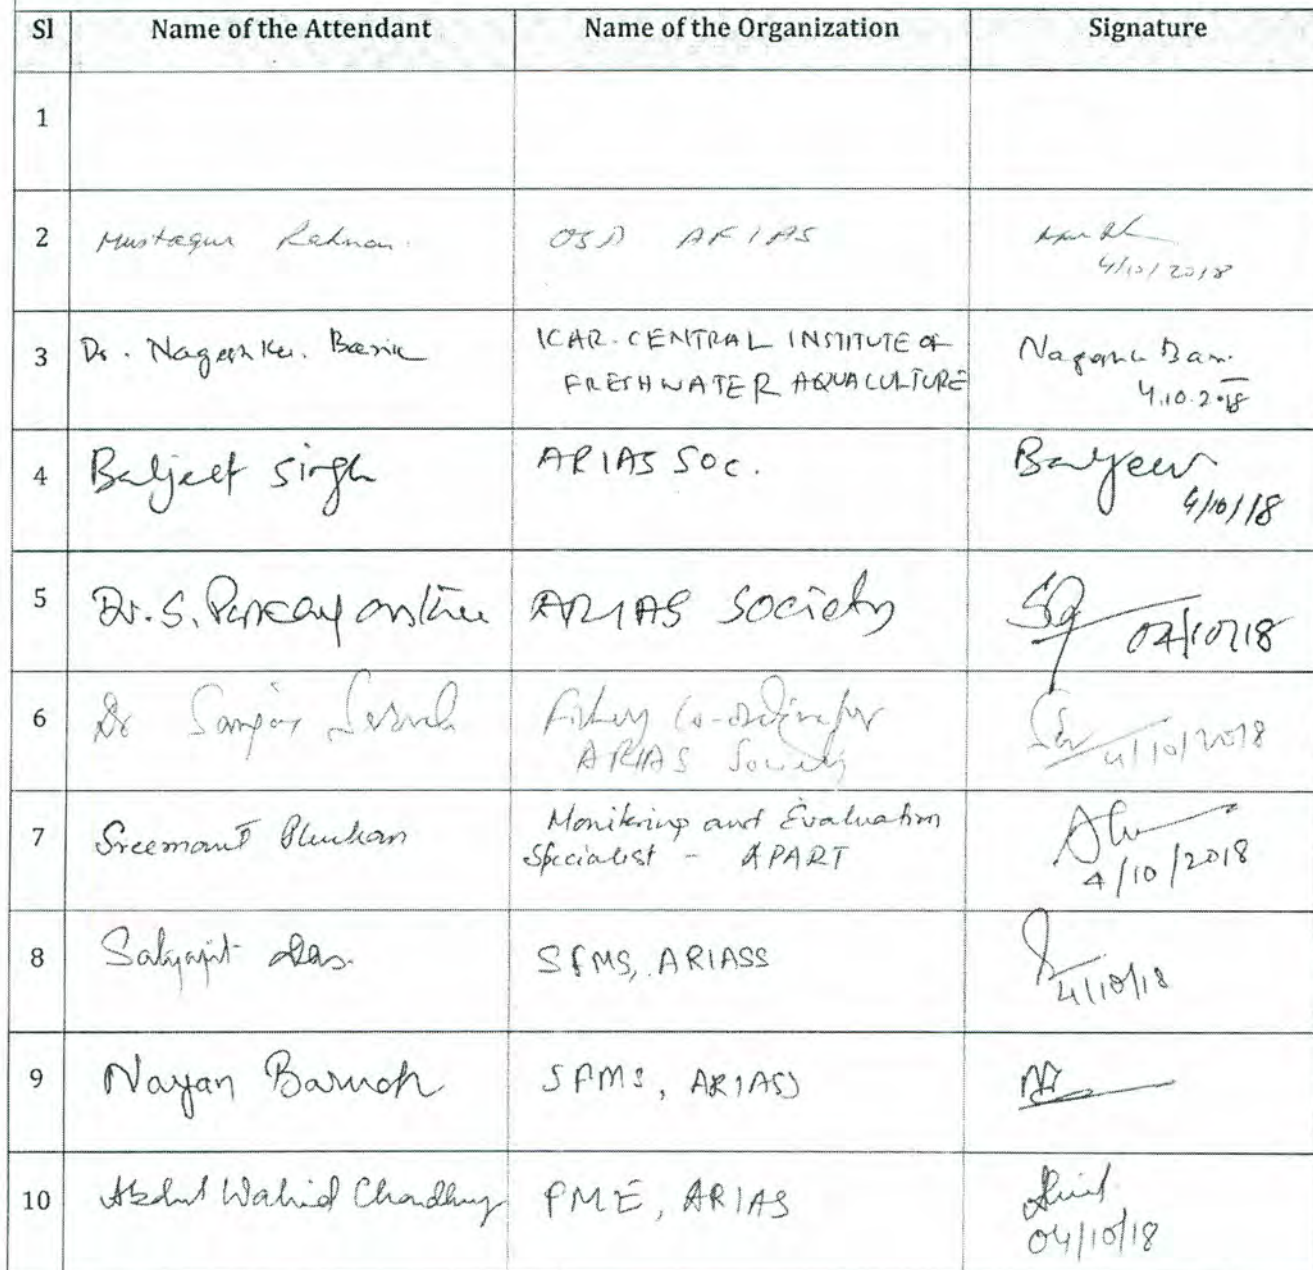 Sl Name of the Attendant Name of the Organization Signature
1
2 Mustaqur Rahman. OSD ARIAS
4/10/2018
3 Dr. Nagesh Ku. Barik ICAR-CENTRAL INSTITUTE OF
FRESHWATER AQUACULTURE
4.10.2018
4 Baljeet Singh ARIAS SOC. Baljeet
4/10/18
5 Dr. S. Purkayastha ARIAS Society
04/10/18
6 Dr Sanjay Sarmah Fishery Co-ordinator
ARIAS Society
4/10/2018
7 Sreemant Phukan Monitoring and Evaluation
Specialist - APART
4/10/2018
8 Satyajit Das. SFMS, ARIASS
4/10/18
9 Nayan Baruah SPMS, ARIASS
10 Abdul Wahid Choudhury PME, ARIAS
04/10/18